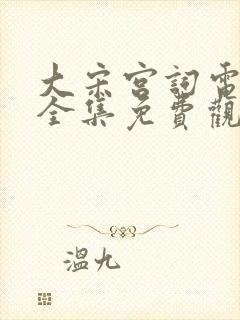 大宋宮詞電
全集免費觀
溫九